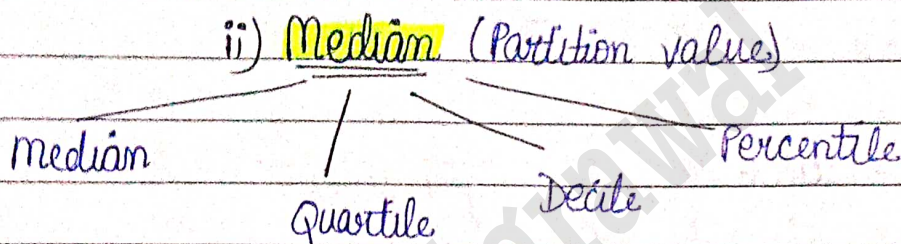 ii) Median (Partition values)
Median
Quartile
Decile
Percentile